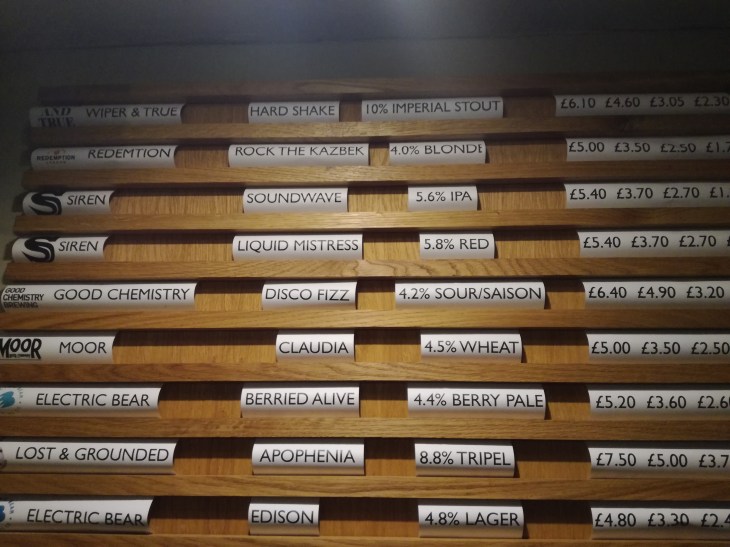 AND TRUE WIPER & TRUE HARD SHAKE 10% IMPERIAL STOUT £6.10 £4.60 £3.05 £2.30
REDEMPTION REDEMTION ROCK THE KAZBEK 4.0% BLONDE £5.00 £3.50 £2.50
SIREN SOUNDWAVE 5.6% IPA £5.40 £3.70 £2.70
SIREN LIQUID MISTRESS 5.8% RED £5.40 £3.70 £2.70
GOOD CHEMISTRY BREWING GOOD CHEMISTRY DISCO FIZZ 4.2% SOUR/SAISON £6.40 £4.90 £3.20
MOOR MOOR CLAUDIA 4.5% WHEAT £5.00 £3.50 £2.50
ELECTRIC BEAR BERRIED ALIVE 4.4% BERRY PALE £5.20 £3.60
LOST & GROUNDED APOPHENIA 8.8% TRIPEL £7.50 £5.00
ELECTRIC BEAR EDISON 4.8% LAGER £4.80 £3.30